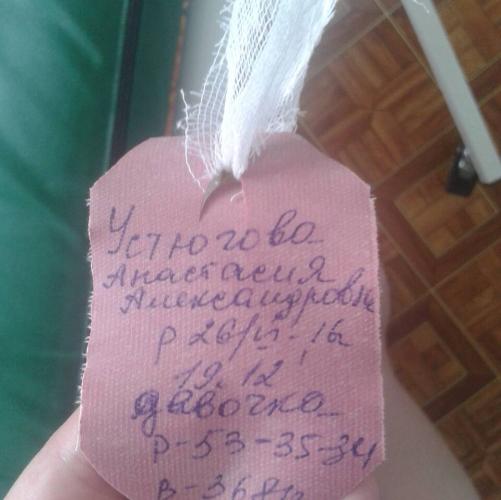 Устюгова
Анастасия
Александровна
р 26/VI-16
19.12
дявочка
р-53-35-34
В-368